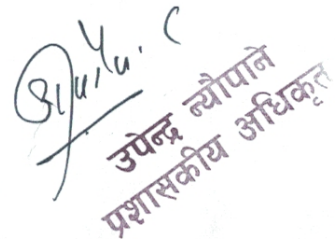 उपेन्द्र न्यौपाने
प्रशासकीय अधिकृत